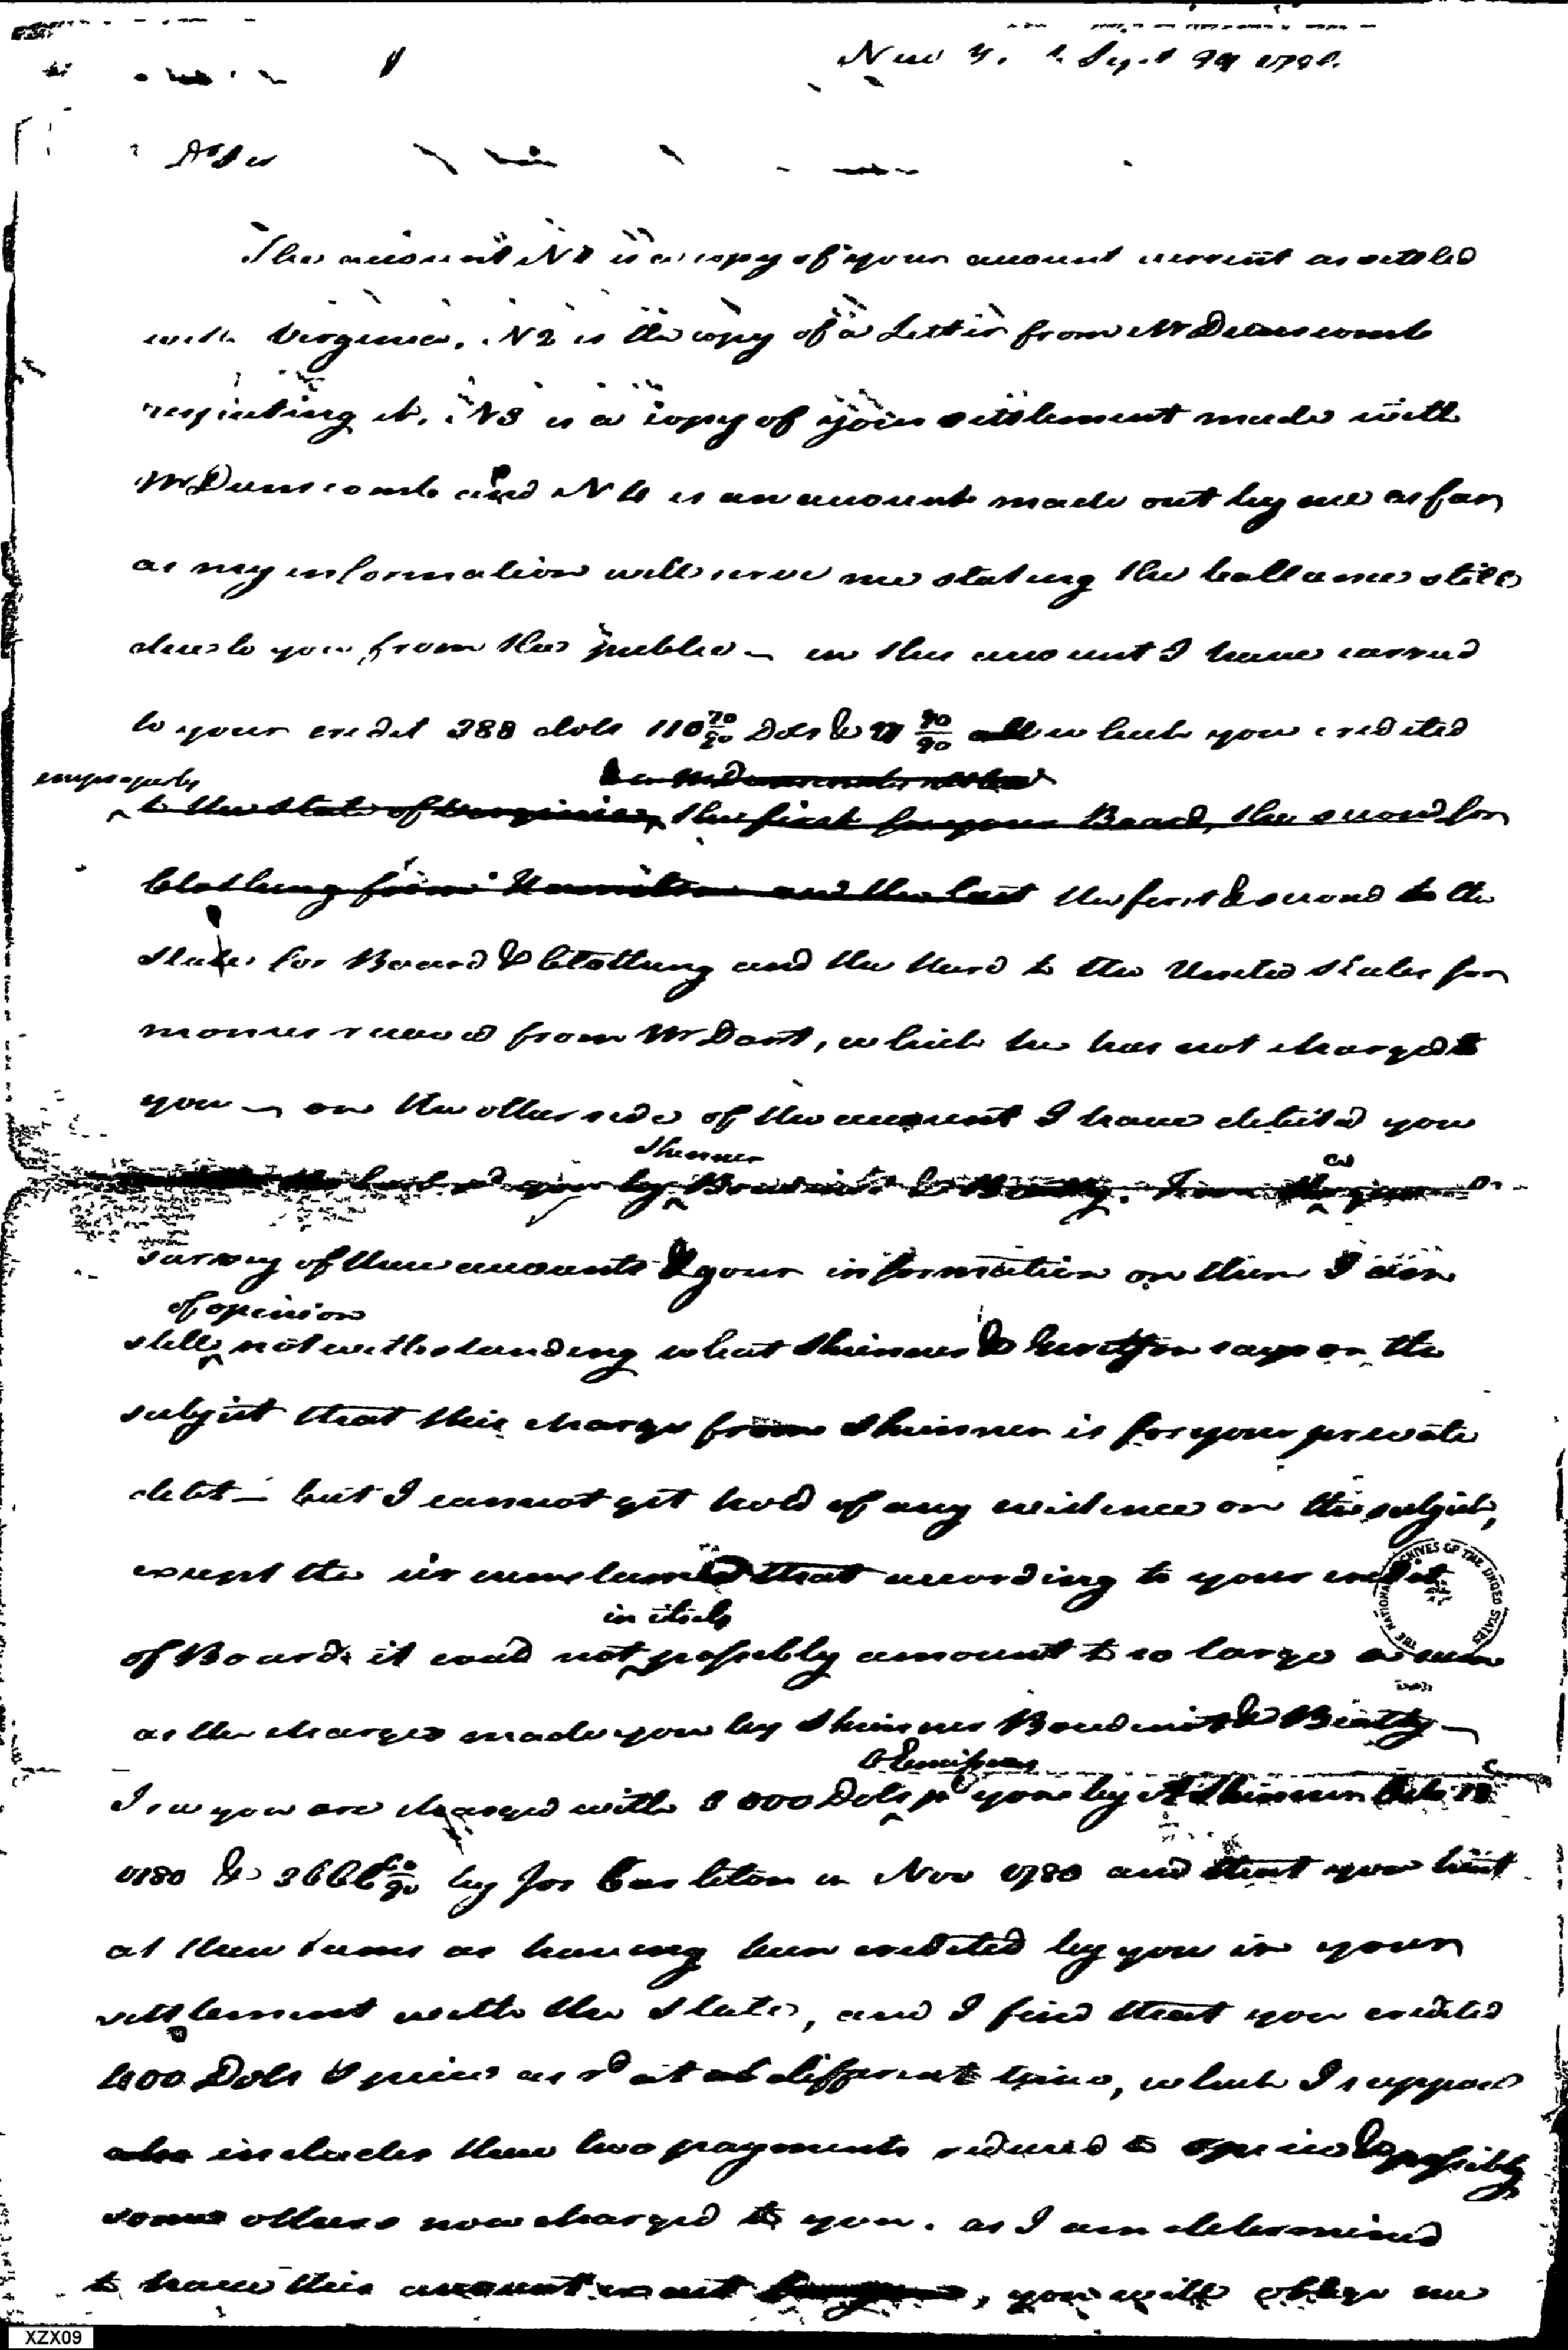 New Y. k Sept 29 178
Dr Sir
The account N1 is a copy of your account current as settled
with Virginia. N2 is the copy of a Letter from Mr Dunscomb
respecting it. N3 is a copy of your settlement made with
Mr Dunscomb and N4 is an account made out by me as far
as my information will serve me stating the ballance still
due to you from the public – in this account I have carried
to your credit 388 dols 110 70/90 Dols & 97 90/90 which you credited
improperly
to the State of Virginia, the first for your Board, the second for
Clothing from Hamilton and the last the first & second to the
State for Board & Clothing and the third to the United States for
monies received from Mr Dart, which he has not charged to
you – on the other side of the account I have debited you
Skinner
by Boudinot & Beatty. From the
survey of these accounts & your information on them I am
of opinion
still notwithstanding what Skinner & says on the
subject that this charge from Skinner is for your private
debt – but I cannot get hold of any evidence on the subject,
except the circumstance that according to your credit
in itself
of Board it could not possibly amount to so large a sum
as the charges made you by Skinner Boudinot & Beatty –
I see you are charged with 3000 Dols pd you by A Skinner
1780 & 3666 60/90 by Jos Carleton in Nov 1780 and that you hint
at these sums as having been credited by you in your
settlement with the State, and I find that you credited
400 Dols Specie as rd at different times, which I suppose
also includes these two payments reduced to specie & possibly
some others now charged to you. as I am determined
to have this account , you will oblige me
THE NATIONAL ARCHIVES OF THE UNITED STATES
XZX09